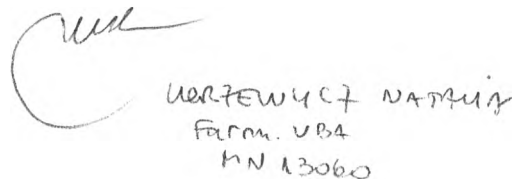 KERZEWYCZ NATALIA
Farm. UBA
MN 13060